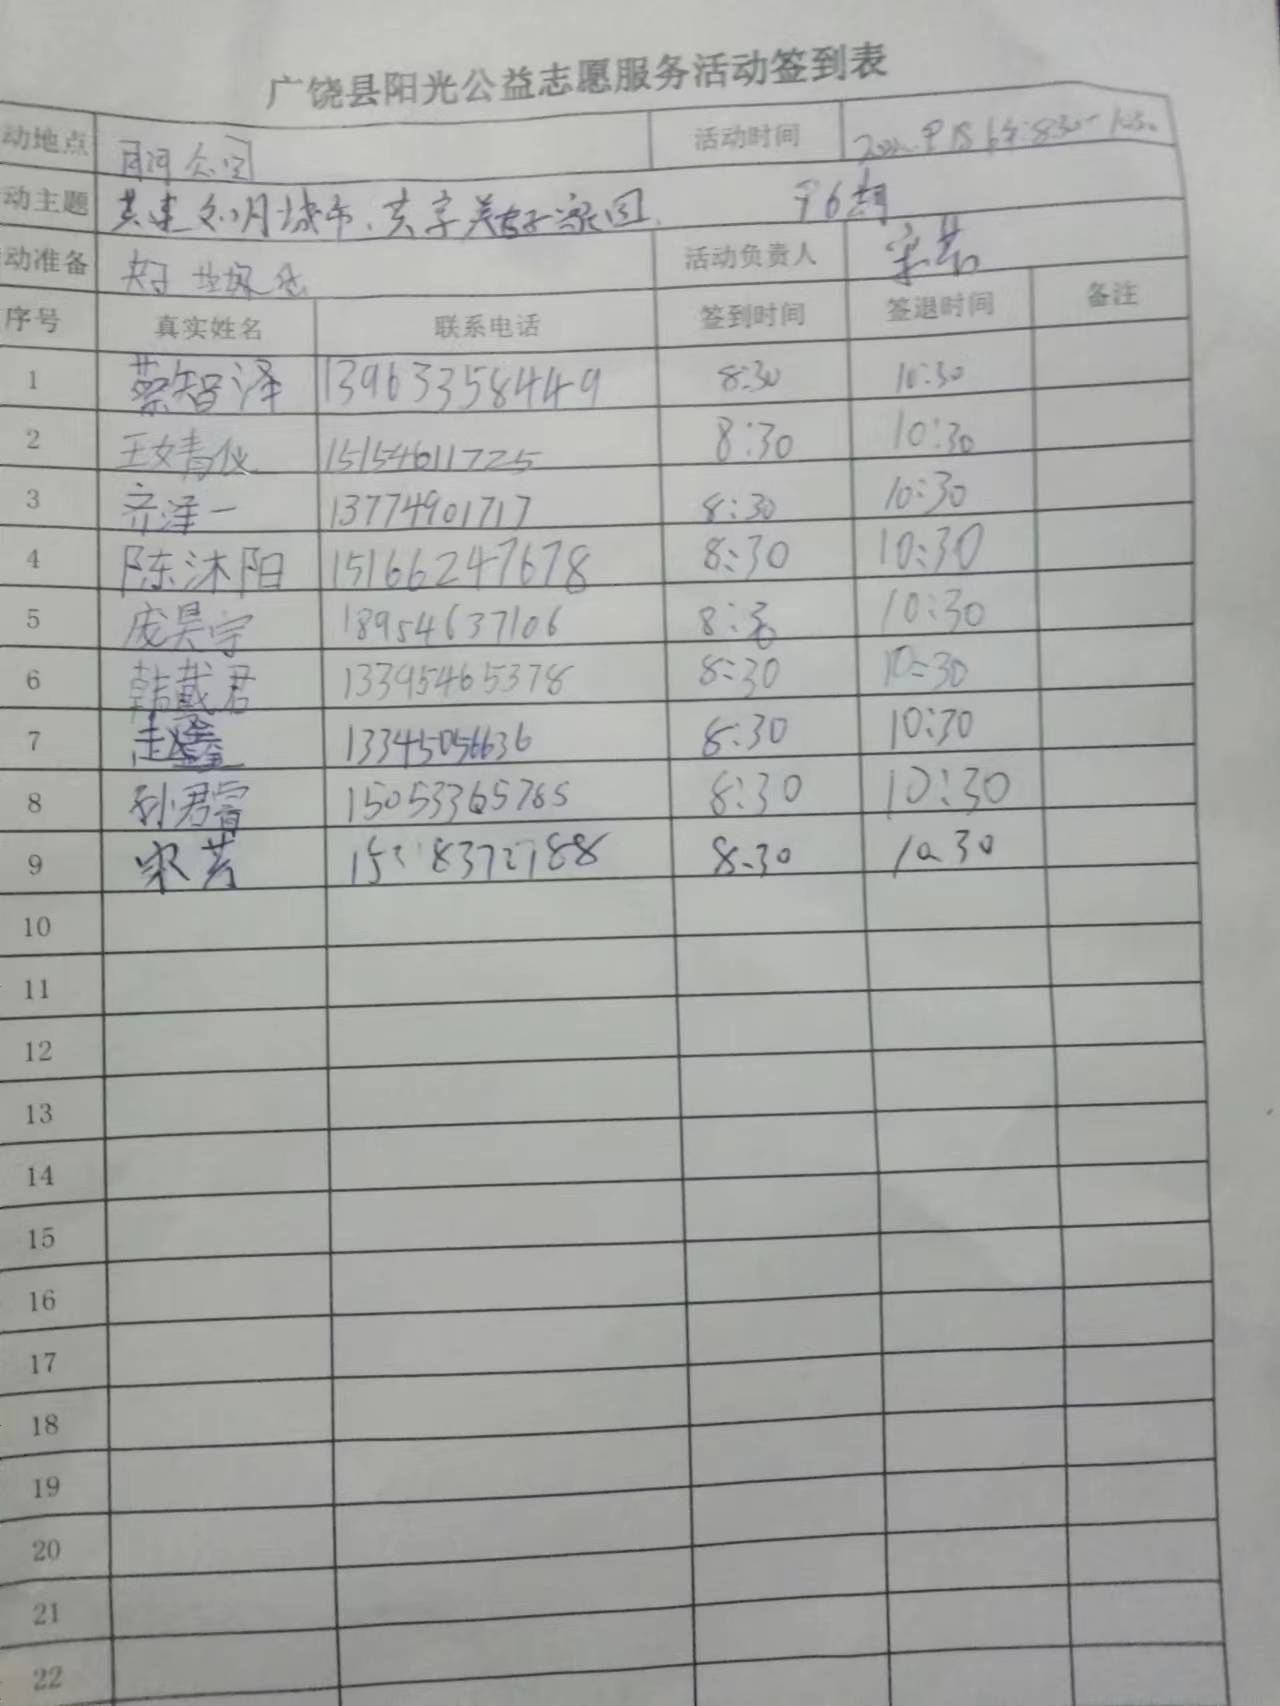 广饶县阳光公益志愿服务活动签到表
动地点 月河公园 活动时间
动主题 共建文明城市、共享美好家园
动准备 夹子 垃圾 活动负责人 宋芳
序号 真实姓名 联系电话 签到时间 签退时间 备注
1 蔡智泽 13963358449 8:30 10:30
2 王文青仪 15154611725 8:30 10:30
3 齐泽一 13774901717 8:30 10:30
4 陈沐阳 15166247678 8:30 10:30
5 庞昊宇 18954637106 8:30 10:30
6 韩葳君 13395465378 8:30 10:30
7 13345056636 8:30 10:30
8 孙君霄 15053365785 8:30 10:30
9 宋芳 8:30 10:30
10
11
12
13
14
15
16
17
18
19
20
21
22